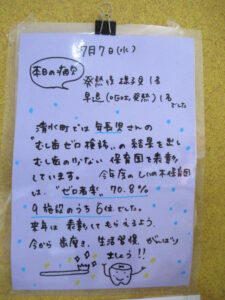 7月7日(水)
本日の病欠
発熱後様子見 1名
早退(嘔吐、発熱) 1名
でした
清水町では年長児さんの
"むし歯ゼロ検診"の結果を出し
むし歯の少ない保育園を表彰
しています。今年度の
は、"ゼロ者率" 70.8%
9施設のうち6位でした。
来年は表彰してもらえるよう、
今から歯磨き、生活習慣、がんばり
ましょう!!